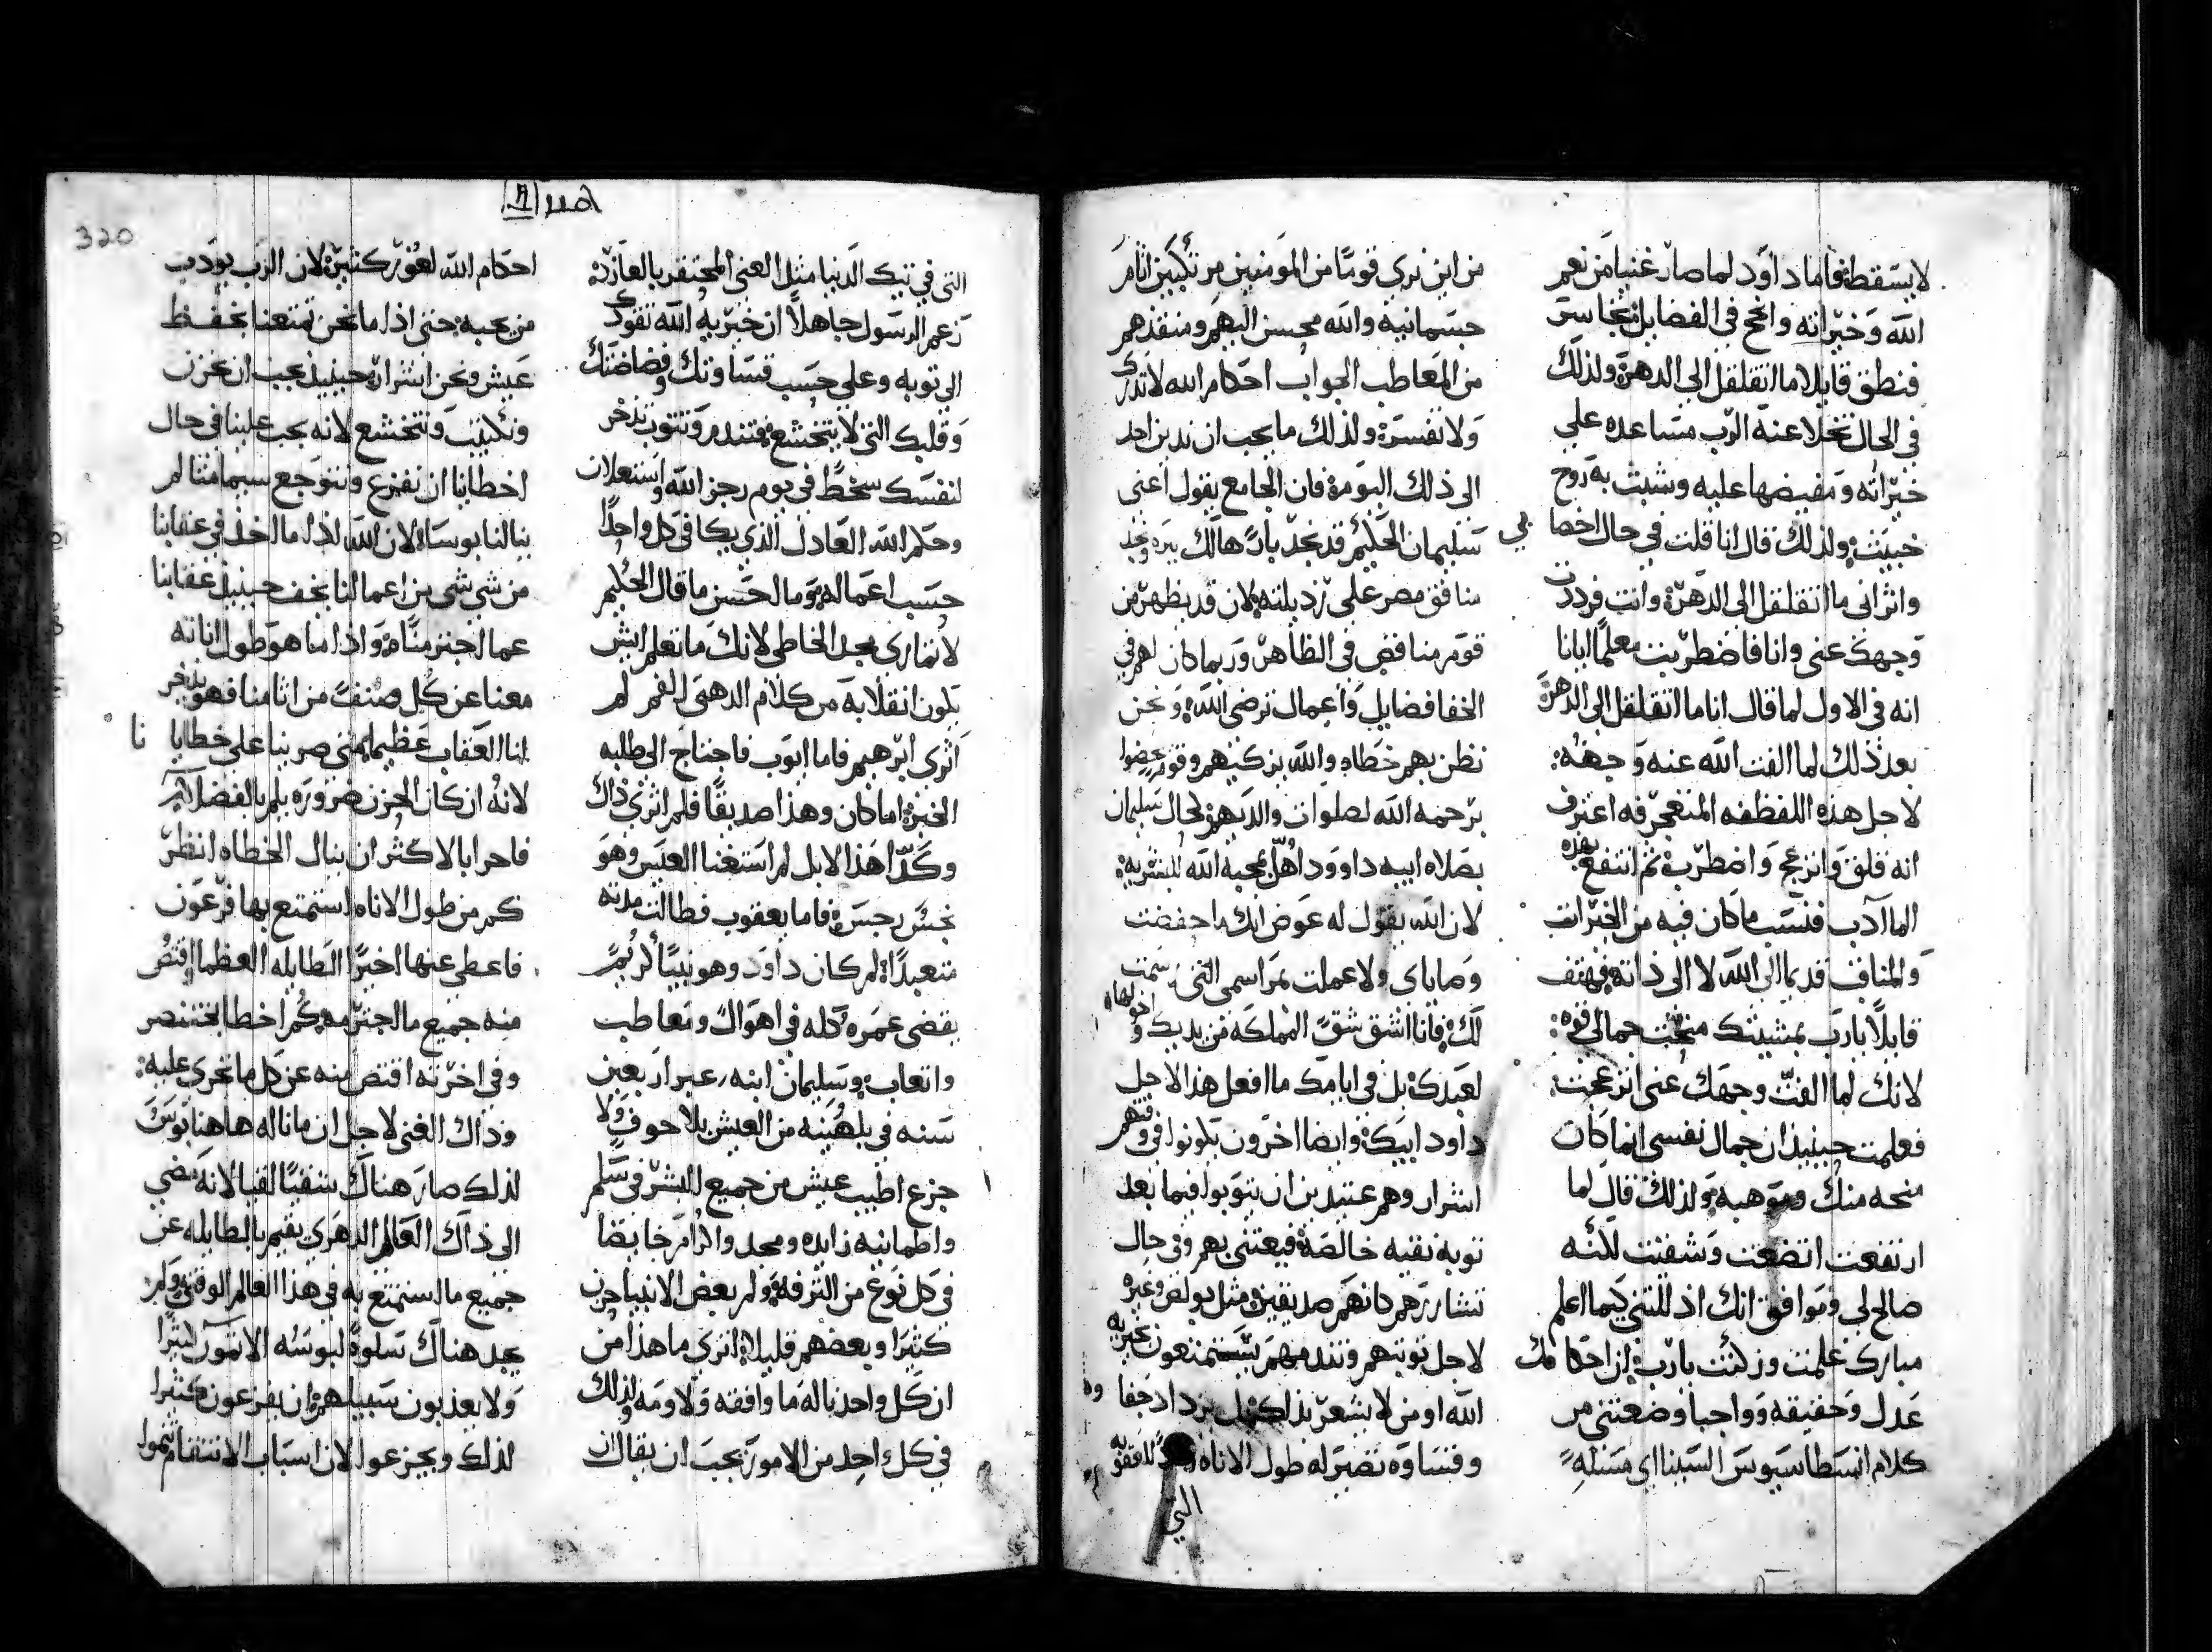 لا يسقط فاما داوود لما صار غنيا من نعم
الله وخيراته وانجح في الفضايل تجاسر
فنطق قايلا ما اتقلقل الى الدهر ولذلك
في الحال تخلا عنه الرب مساعده على
خيراته ومفيضها عليه وشبث به روح
خبيث ولذلك قال انا قلت في حال اخصا
بي
واثراني ما اتقلقل الى الدهر وانت فرددت
وجهك عني وانا فاضطربت معلما ايانا
انه في الاول لما قال انا ما اتقلقل الى الدهر
بعد ذلك لما الفت الله عنه وجهه
لاجل هذه اللفظه المتعجرفه اعترف
انه قلق وانزعج واضطرب ثم انتفع بهذه
المآدب فنسب ما كان فيه من الخيرات
والمناقب قديما الى الله لا الى ذاته فهتف
قايلا يارب بمشيتك منحت جمالي قوه
لانك لما الفت وجهك عني انزعجت
فعلمت حينيذ ان جمال نفسي انما كان
منحه منك وموهبه ولذلك قال لما
ارتفعت اتضعت وشقيت لانه
صالح لي وموافق انك اذللتني كيما اعلم
مبارك علمت وزكنت يارب ان احكامك
عدل وحقيقه وواجبا وضعتني من
كلام انسطاسيوس السينااي مسله
من اين نري قوما من المومنين مرتكبين اثام
جسمانيه والله محسن اليهم ومنقذهم
من المعاطب الجواب احكام الله لا تدرك
ولا تفسر ولذلك ما يجب ان ندين احد
الى ذلك اليوم فان الجامع يقول اعني
سليمان الحكيم قد نجد بارا هالك ببره ونجد
منافق مصر على رذيلته لان قد يظهر من
قوم منافقين في الظاهر وربما كان لهم في
الخفا فضايل واعمال ترضي الله ونحن
نظن بهم خطاه والله يزكيهم وقوم عضوا
برحمه الله لصلوات والديهم لحال سليمان
بصلاه ابيه داوود اهل محبه الله للبشريه
لان الله يقول له عوض انك ما حفضت
وصاياي ولا عملت بمراسمي التي رسمت
لك فانا اشق شق المملكه من يديك واخولها
لعبدك بل في ايامك ما افعل هذا لاجل
داود ابيك وايضا اخرون يكونوا في وقتهم
اشرار وهم عتيدين ان يتوبوا فيما بعد
توبه نقيه خالصه فيعتني بهم وفي حال
نتشاررهم كانهم صديقين مثل بولص وغيره
لاجل توبتهم وتندمهم يستمتعون بخيريه
الله او من لا يشعر بذلك بل يزداد جفا
وقساوه تصير له طول الاناه للعقوبه
التي
320
التي في تيك الدنيا مثل الغني المحتقر بالعازر
زعم الرسول جاهلا ان خيريه الله تقودك
الى توبه وعلى حسب قساوتك وفضاضتك
وقلبك التي لا يتخشع فتندم وتتوب تذخر
لنفسك سخط في يوم رجز الله واستعلان
وحكم الله العادل الذي يكافي كل واحدا
حسب اعماله وما احسن ما قال الحكيم
لا تماري مجد الخاطي لانك ما تعلم ايش
يكون انقلابه من كلام الدهبي الفم لم
اثري ابرهيم فاما ايوب فاحتاج الى طلبه
الخبز اما كان وهذا صديقا فلم اثري ذاك
وكدا هذا الابل لم استغنا العيس وهو
نجس رجس فاما يعقوب فطالت مدته
متعبدا لم كان داود وهو نبيا كريم
يقضي عمره كله في اهوال ومعاطب
واتعاب وسليمان ابنه عبر اربعين
سنه في بلهنيه من العيش بلا خوف ولا
جزع اطيب عيش من جميع البشر في سلم
واطمانيه زايده ومجد واكرام رخا يضا
في كل نوع من الترفه ولم بعض الانبيا حزن
كثيرا وبعضهم قليلا اتري ما هذا من
ان كل واحد ناله ما وافقه ولاومه ولذلك
في كل واحد من الامور يجب ان يقال ان
احكام الله لغور كثير لان الرب يودب
من يحبه حتى اذا ما نحن تمتعنا بخفظ
عيش ونحن اشرار حينيذ يجب ان نحزن
ونكتيب ونتخشع لانه يجب علينا في حال
اخطانا ان نفزع ونتوجع سيما متى لم
ينالنا بوسا لان الله اذا ما اخذ في عقابنا
من شي شي من اعمالنا يخف حينيذ عقابنا
عما اجترمناه واذا ما هو طول اناته
معنا عن كل صنف من اثامنا فهو يذخر
لنا العقاب عظيما متى صرينا على خطايا
نا
لانه ان كان الحزن ضروره يلم بالفضلا
فاحرا بالاكثر ان ينال الخطاه انظر
كم من طول الاناه استمتع بها فرعون
فاعطي عنها اخيرا الطايله العظما اقتص
منه جميع ما اجترمه كم اخطا بختنصر
وفي اخرته اقتص منه عن كل ما تجري عليه
وذاك الغني لاجل ان ما ناله هاهنا بوس
لذلك صار هناك شقيا لقبا لانه مضي
الى ذاك العالم الدهري يقيم بالطايله عن
جميع ما استمتع به في هذا العالم الوقتي ولم
يجد هناك تسلوه لبوسه الا تمور ليثرا
ولا يعذبون سبيلهم ان يفزعون كثيرا
لذلك ويجزعوا لان اسباب الانتقام تنموا